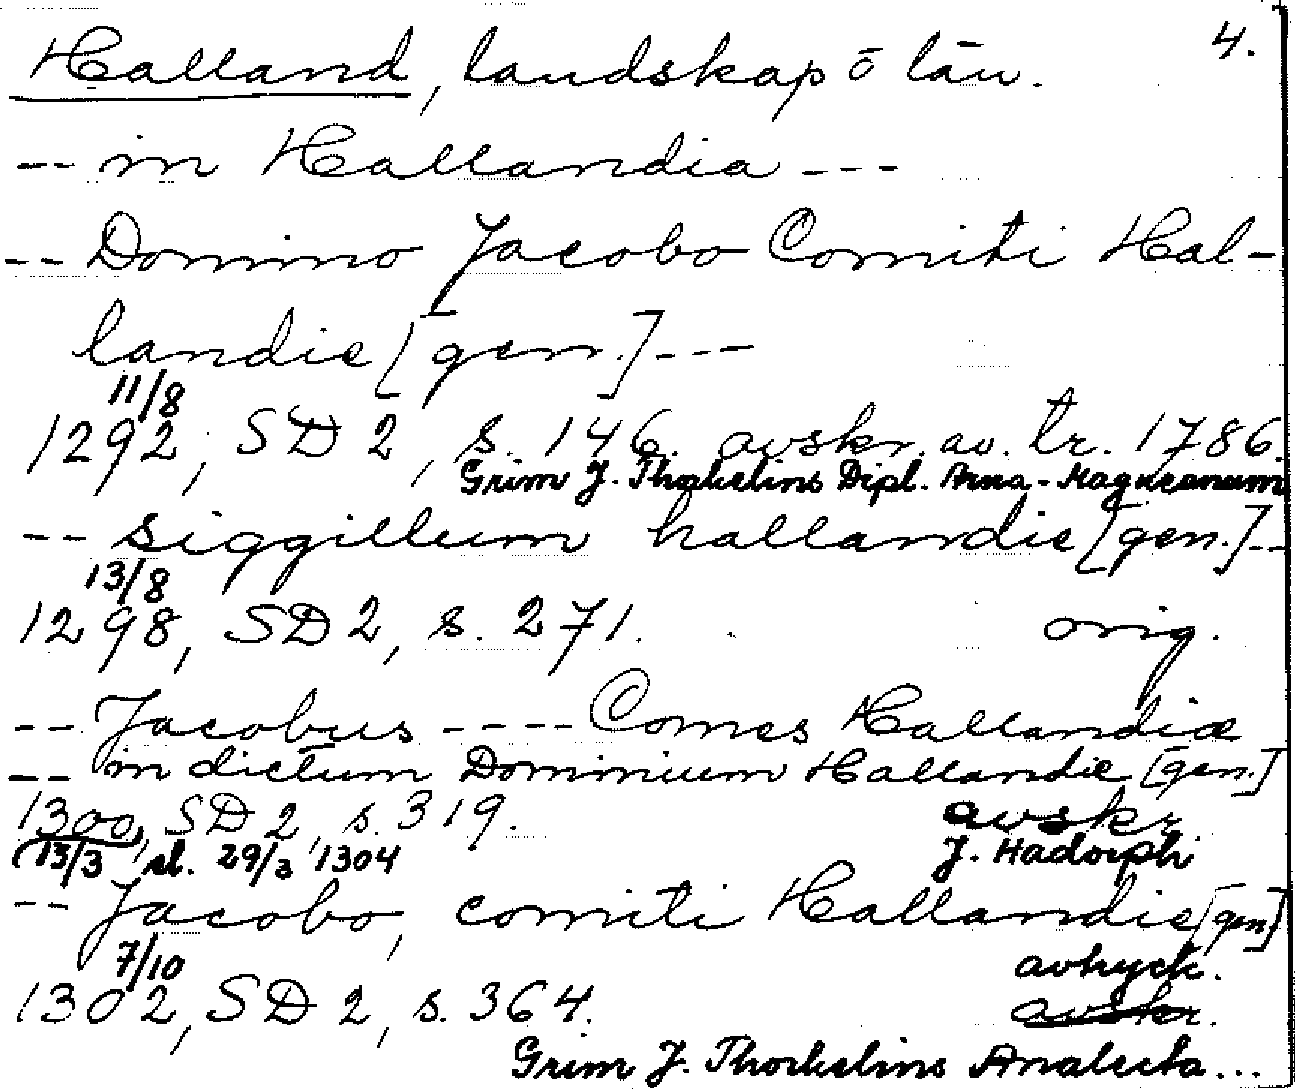 4.
Halland, landskap o län.
-- in Hallandia ---
-- Domino Jacobo Comiti Hal-
landie [gen.] ---
11/8
1292, SD 2, s. 146. avskr. av. tr. 1786.
Grim J. Thorkelins Dipl. Arna-Magnæanum
-- siggillum hallandie [gen.] --
13/8
1298, SD 2, s. 271. orig.
-- Jacobus ---- Comes Hallandiæ
-- in dictum Dominium Hallandie [gen.]
1300, SD 2, s. 319. avskr.
(13/3 sl. 29/3 1304 J. Hadorph
-- Jacobo, comiti Hallandie [gen]
7/10 avtryck.
1302, SD 2, s. 364. avskr.
Grim J. Thorkelins Analecta...